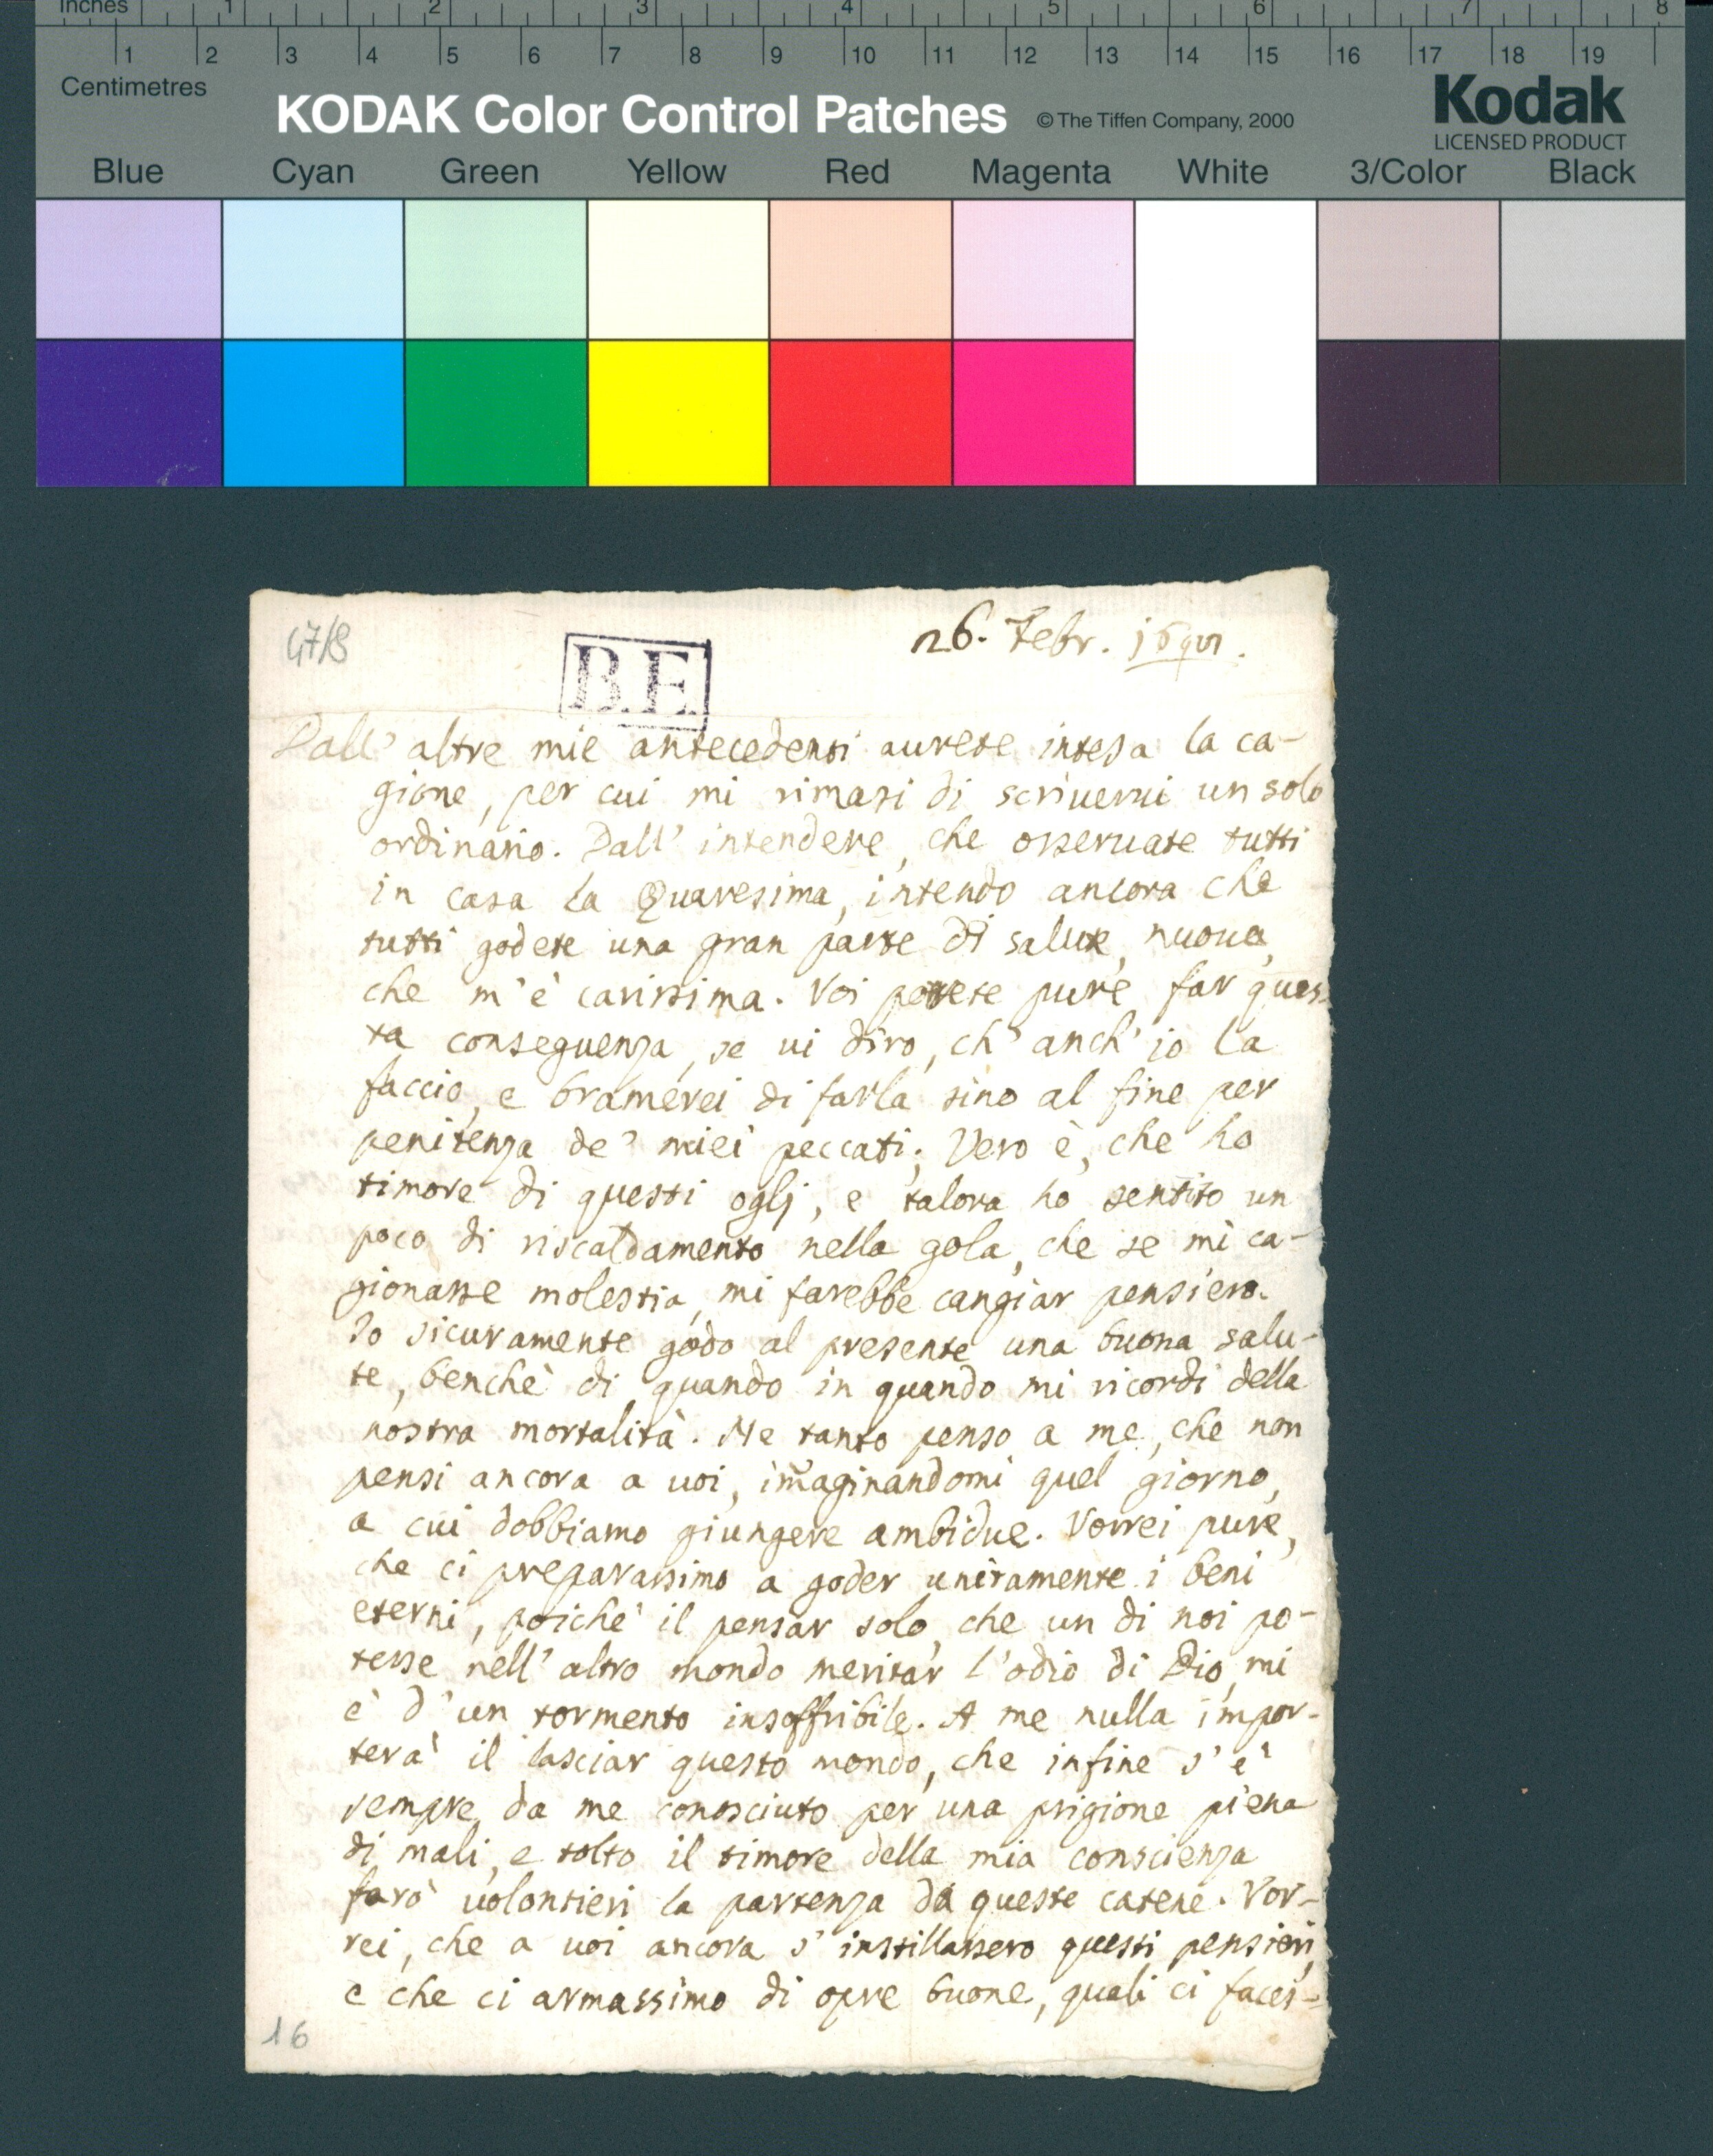 Inches 1 2 3 4 5 6 7 8
1 2 3 4 5 6 7 8 9 10 11 12 13 14 15 16 17 18 19
Centimetres
KODAK Color Control Patches © The Tiffen Company, 2000 Kodak
LICENSED PRODUCT
Blue Cyan Green Yellow Red Magenta White 3/Color Black
47/8
B.E.
26. Febr.
Dall' altre mie antecedenti aurete intesa la ca-
gione, per cui mi rimasi di scriuerui un solo
ordinario. Dall' intendere, che osseruate tutti
in casa la Quaresima, intendo ancora che
tutti godete una gran parte di salute, nuoua,
che m'è carissima. Voi potete pure far ques-
ta conseguenza, se ui diro, ch' anch' io la
faccio, e bramerei di farla sino al fine per
penitenza de' miei peccati; Vero è, che ho
timore di questi oglj, e talora ho sentito un
poco di riscaldamento nella gola, che se mi ca-
gionasse molestia, mi farebbe cangiar pensiero.
Io sicuramente godo al presente una buona salu-
te, benchè di quando in quando mi ricordi della
nostra mortalità. Ne tanto penso a me, che non
pensi ancora a uoi, im̃aginandomi quel giorno,
a cui dobbiamo giungere ambidue. Vorrei pure,
che ci preparassimo a goder unitamente i beni
eterni, poichè il pensar solo, che un di noi po-
tesse nell' altro mondo meritar l'odio di Dio, mi
è d'un tormento insoffribile. A me nulla impor-
terà il lasciar questo mondo, che infine s'è
sempre da me conosciuto per una prigione piena
di mali, e tolto il timore della mia conscienza
farò uolontieri la partenza da queste catene. Vor-
rei, che a uoi ancora s'instillassero questi pensieri,
e che ci armassimo di opre buone, quali ci faces-
16